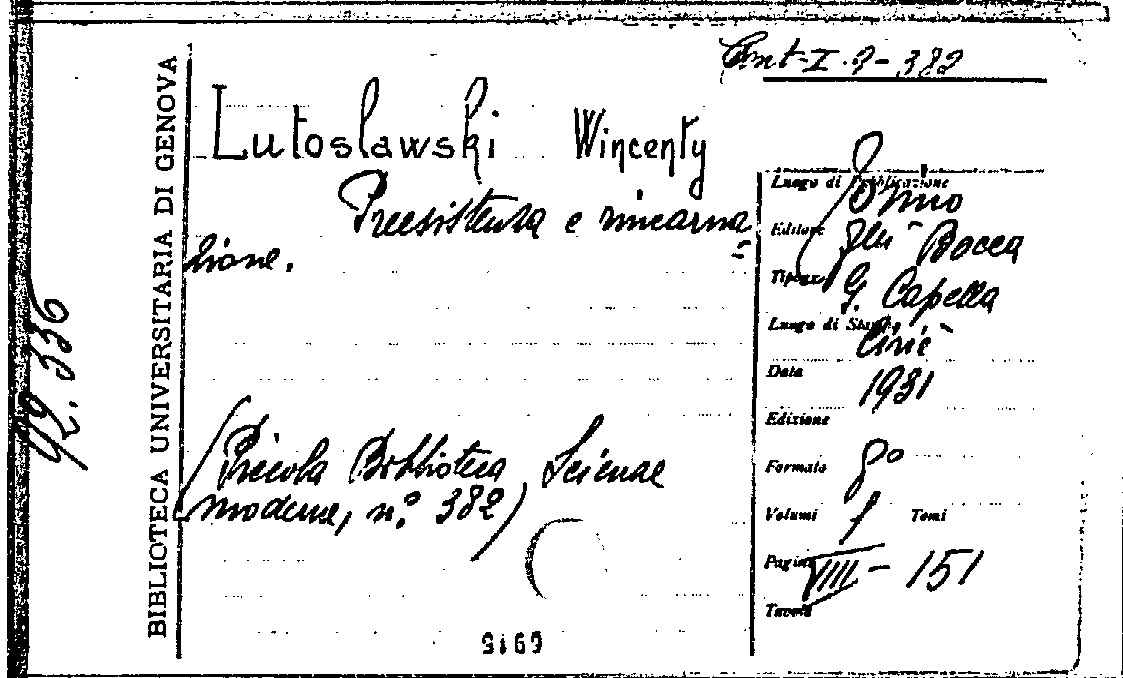 I. 9-382
Lutoslawski Wincenty
Preesistenza e rincarna
=
zione.
(Piccola Biblioteca Scienze
moderne, n.° 382)
BIBLIOTECA UNIVERSITARIA DI GENOVA
92.336
Luogo di Pubblicazione Torino
Editore F.lli Bocca
G. Capella
Luogo di Stampa Ciriè
Data 1931
Edizione
Formato 8°
Volumi 1 Tomi
Pagine VIII - 151
Tavole